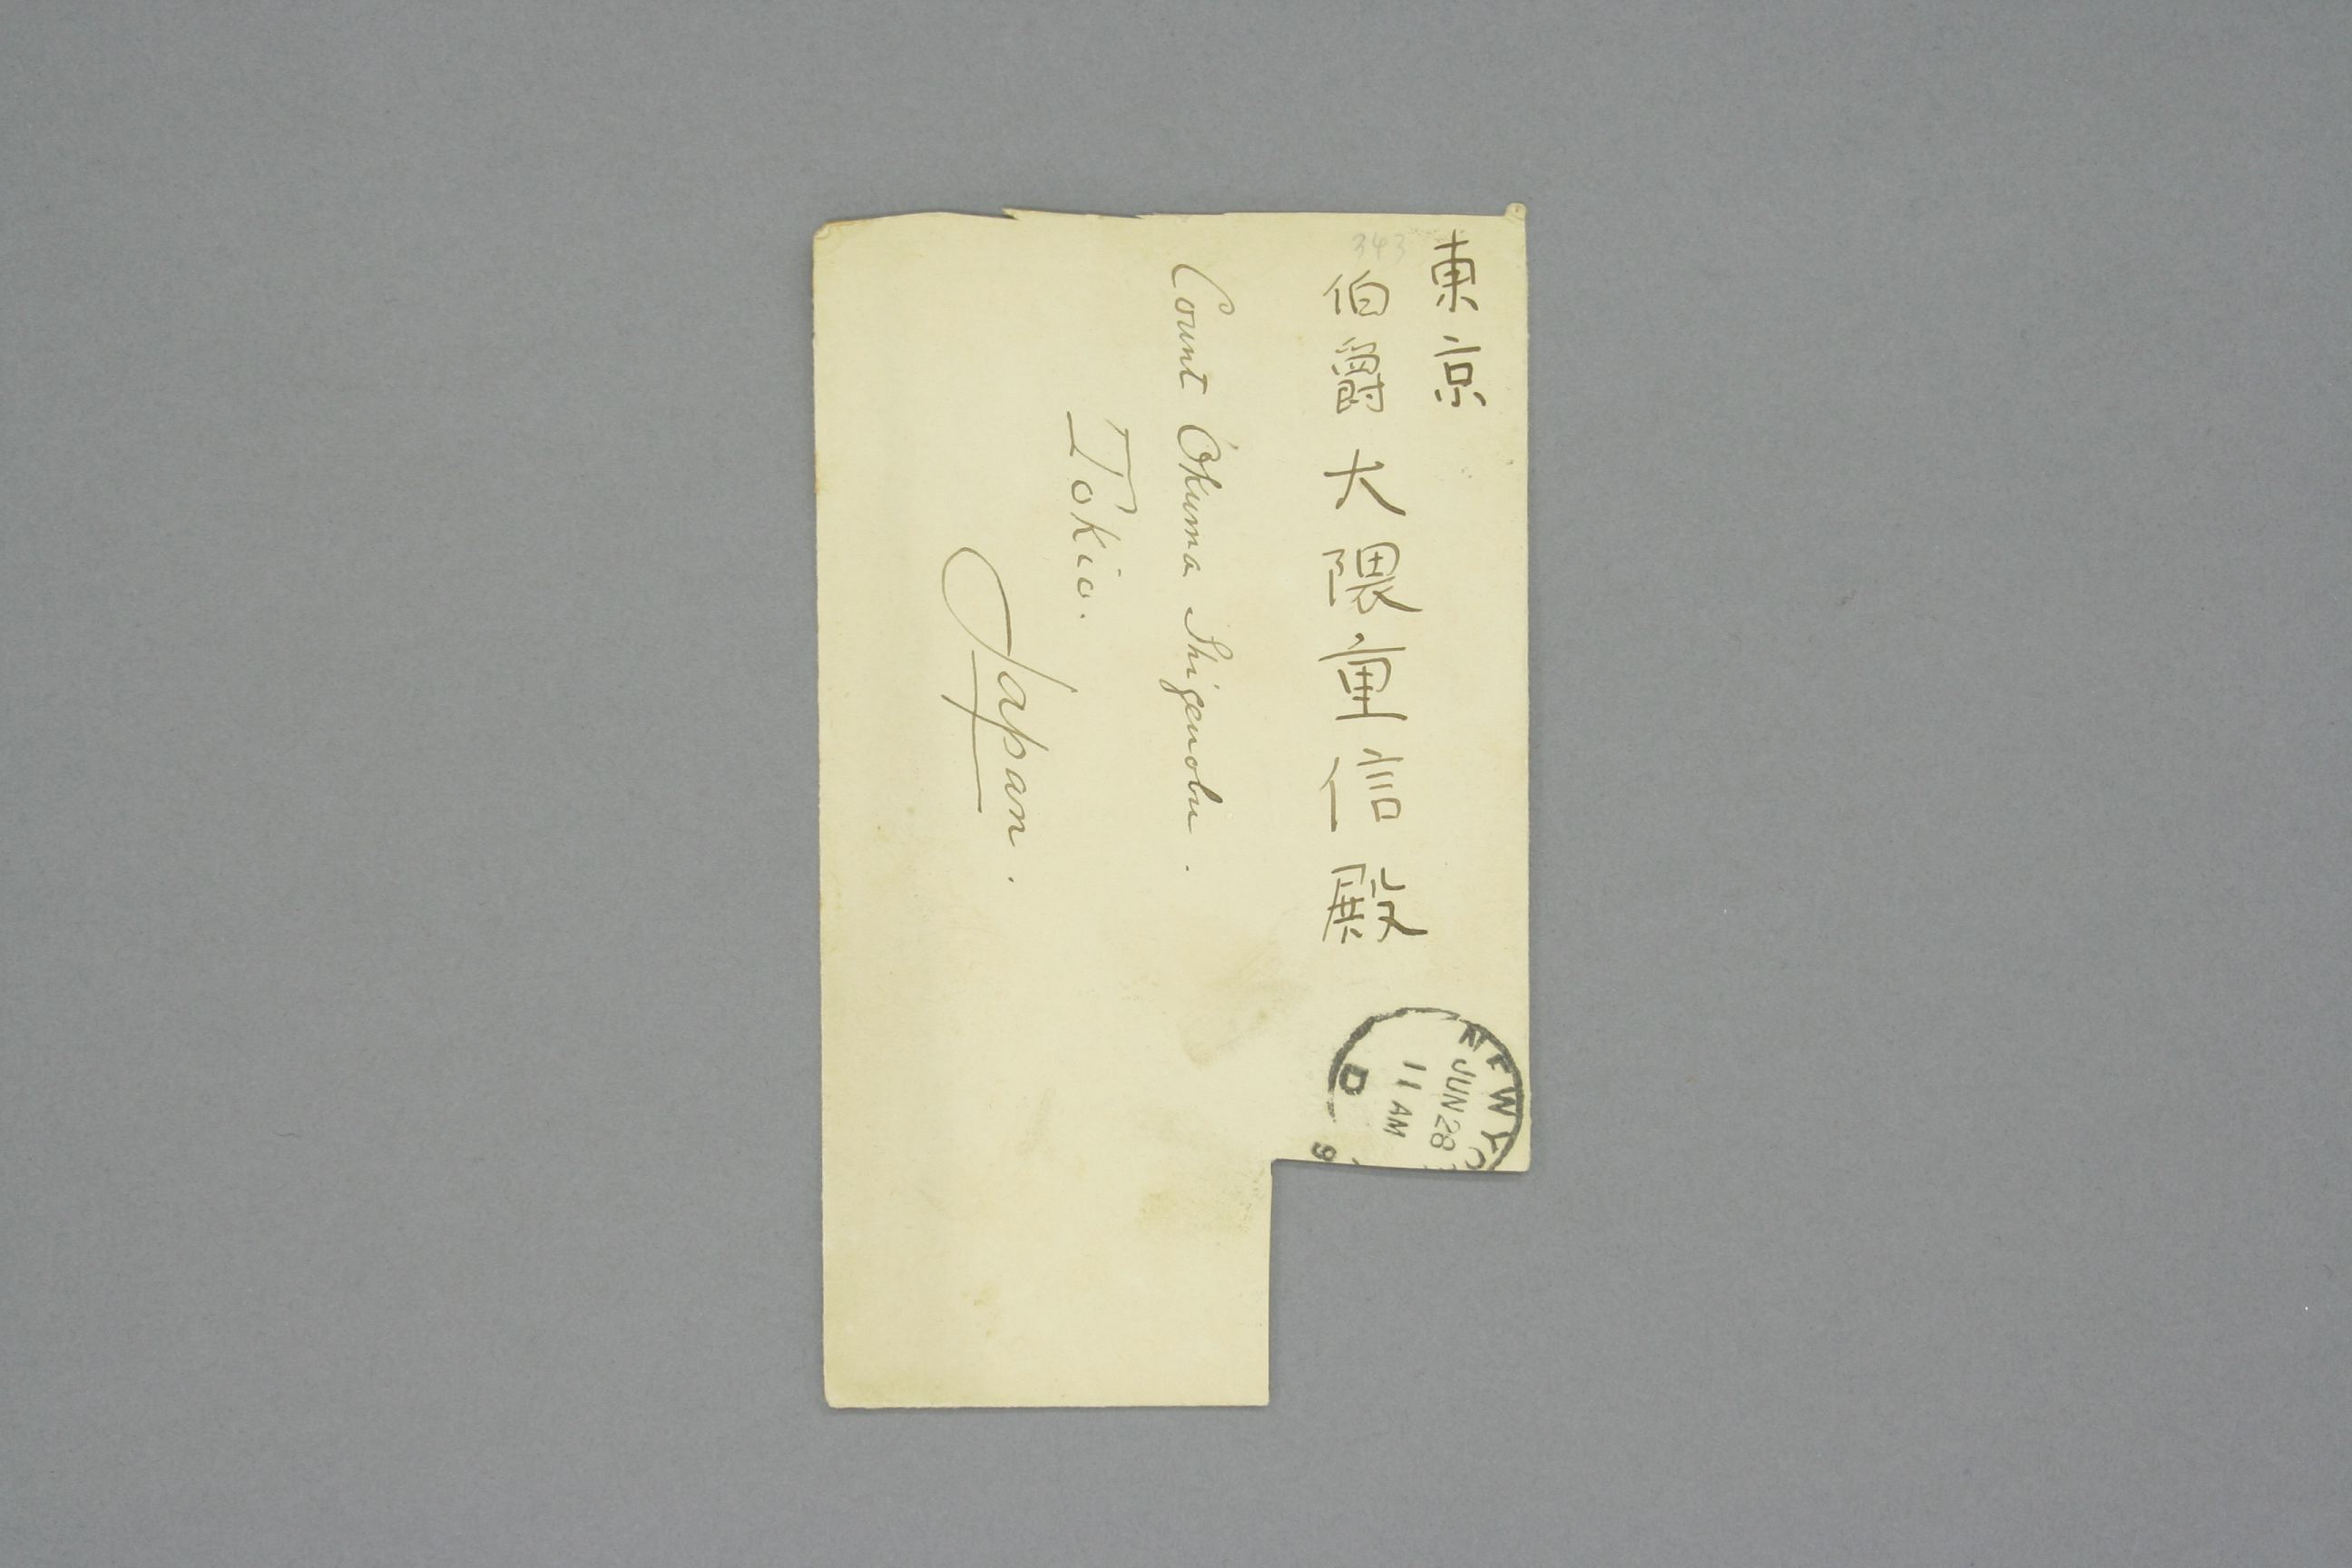 東京
伯爵大隈重信殿
Count Ōkuma Shigenobu.
Tokio.
Japan.
343
NEW YO
JUN 28
11 AM
D
9